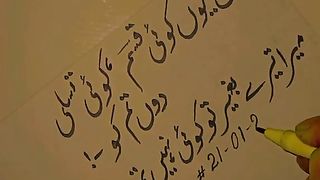 کیوں کوئی قسم ، کوئی تسلی
دوں تم کو !
میرا تیرے بغیر تو کوئی نہیں
# 21-01-2